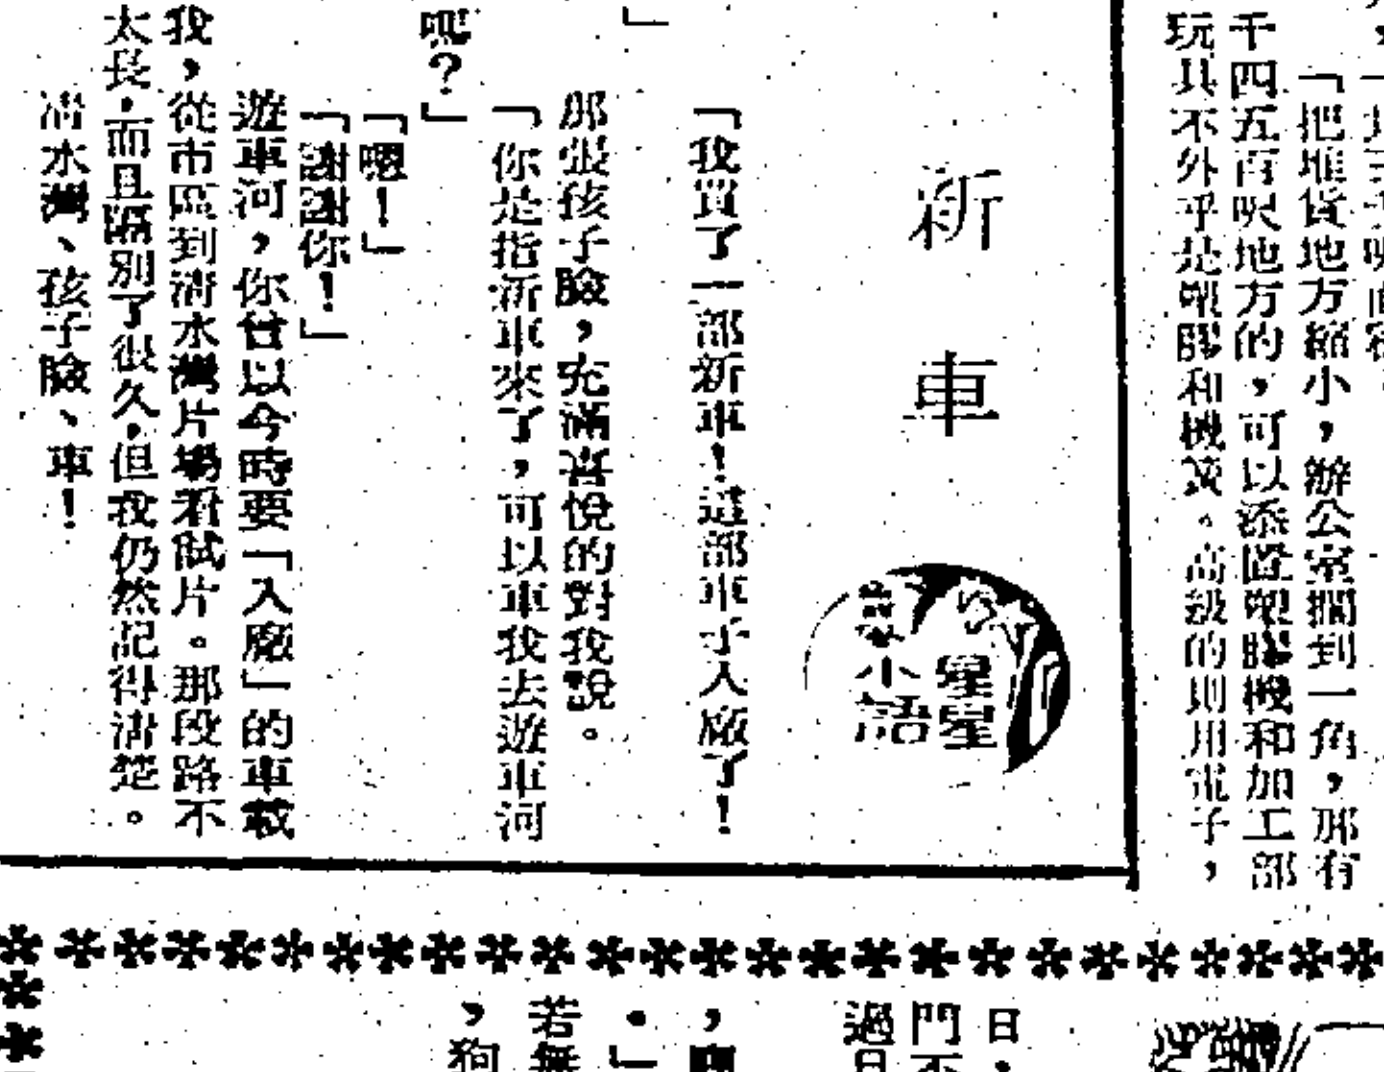 「把堆貨地方縮小，辦公室擱到一角，那有
千四五百呎地方的，可以添置塑膠機和加工部
玩具不外乎是塑膠和機簧。高級的則用電子，
新車
星星
小語
「我買了一部新車！這部車子入廠了！
」
那張孩子臉，充滿喜悅的對我說。
「你是指新車來了，可以車我去遊車河
吧？」
「嗯！」
「謝謝你！」
遊車河，你曾以今時要「入廠」的車載
我，從市區到清水灣片場看試片。那段路不
太長，而且隔別了很久，但我仍然記得清楚。
清水灣、孩子臉、車！
日，
門不
過日
，
．」
若無
，狗